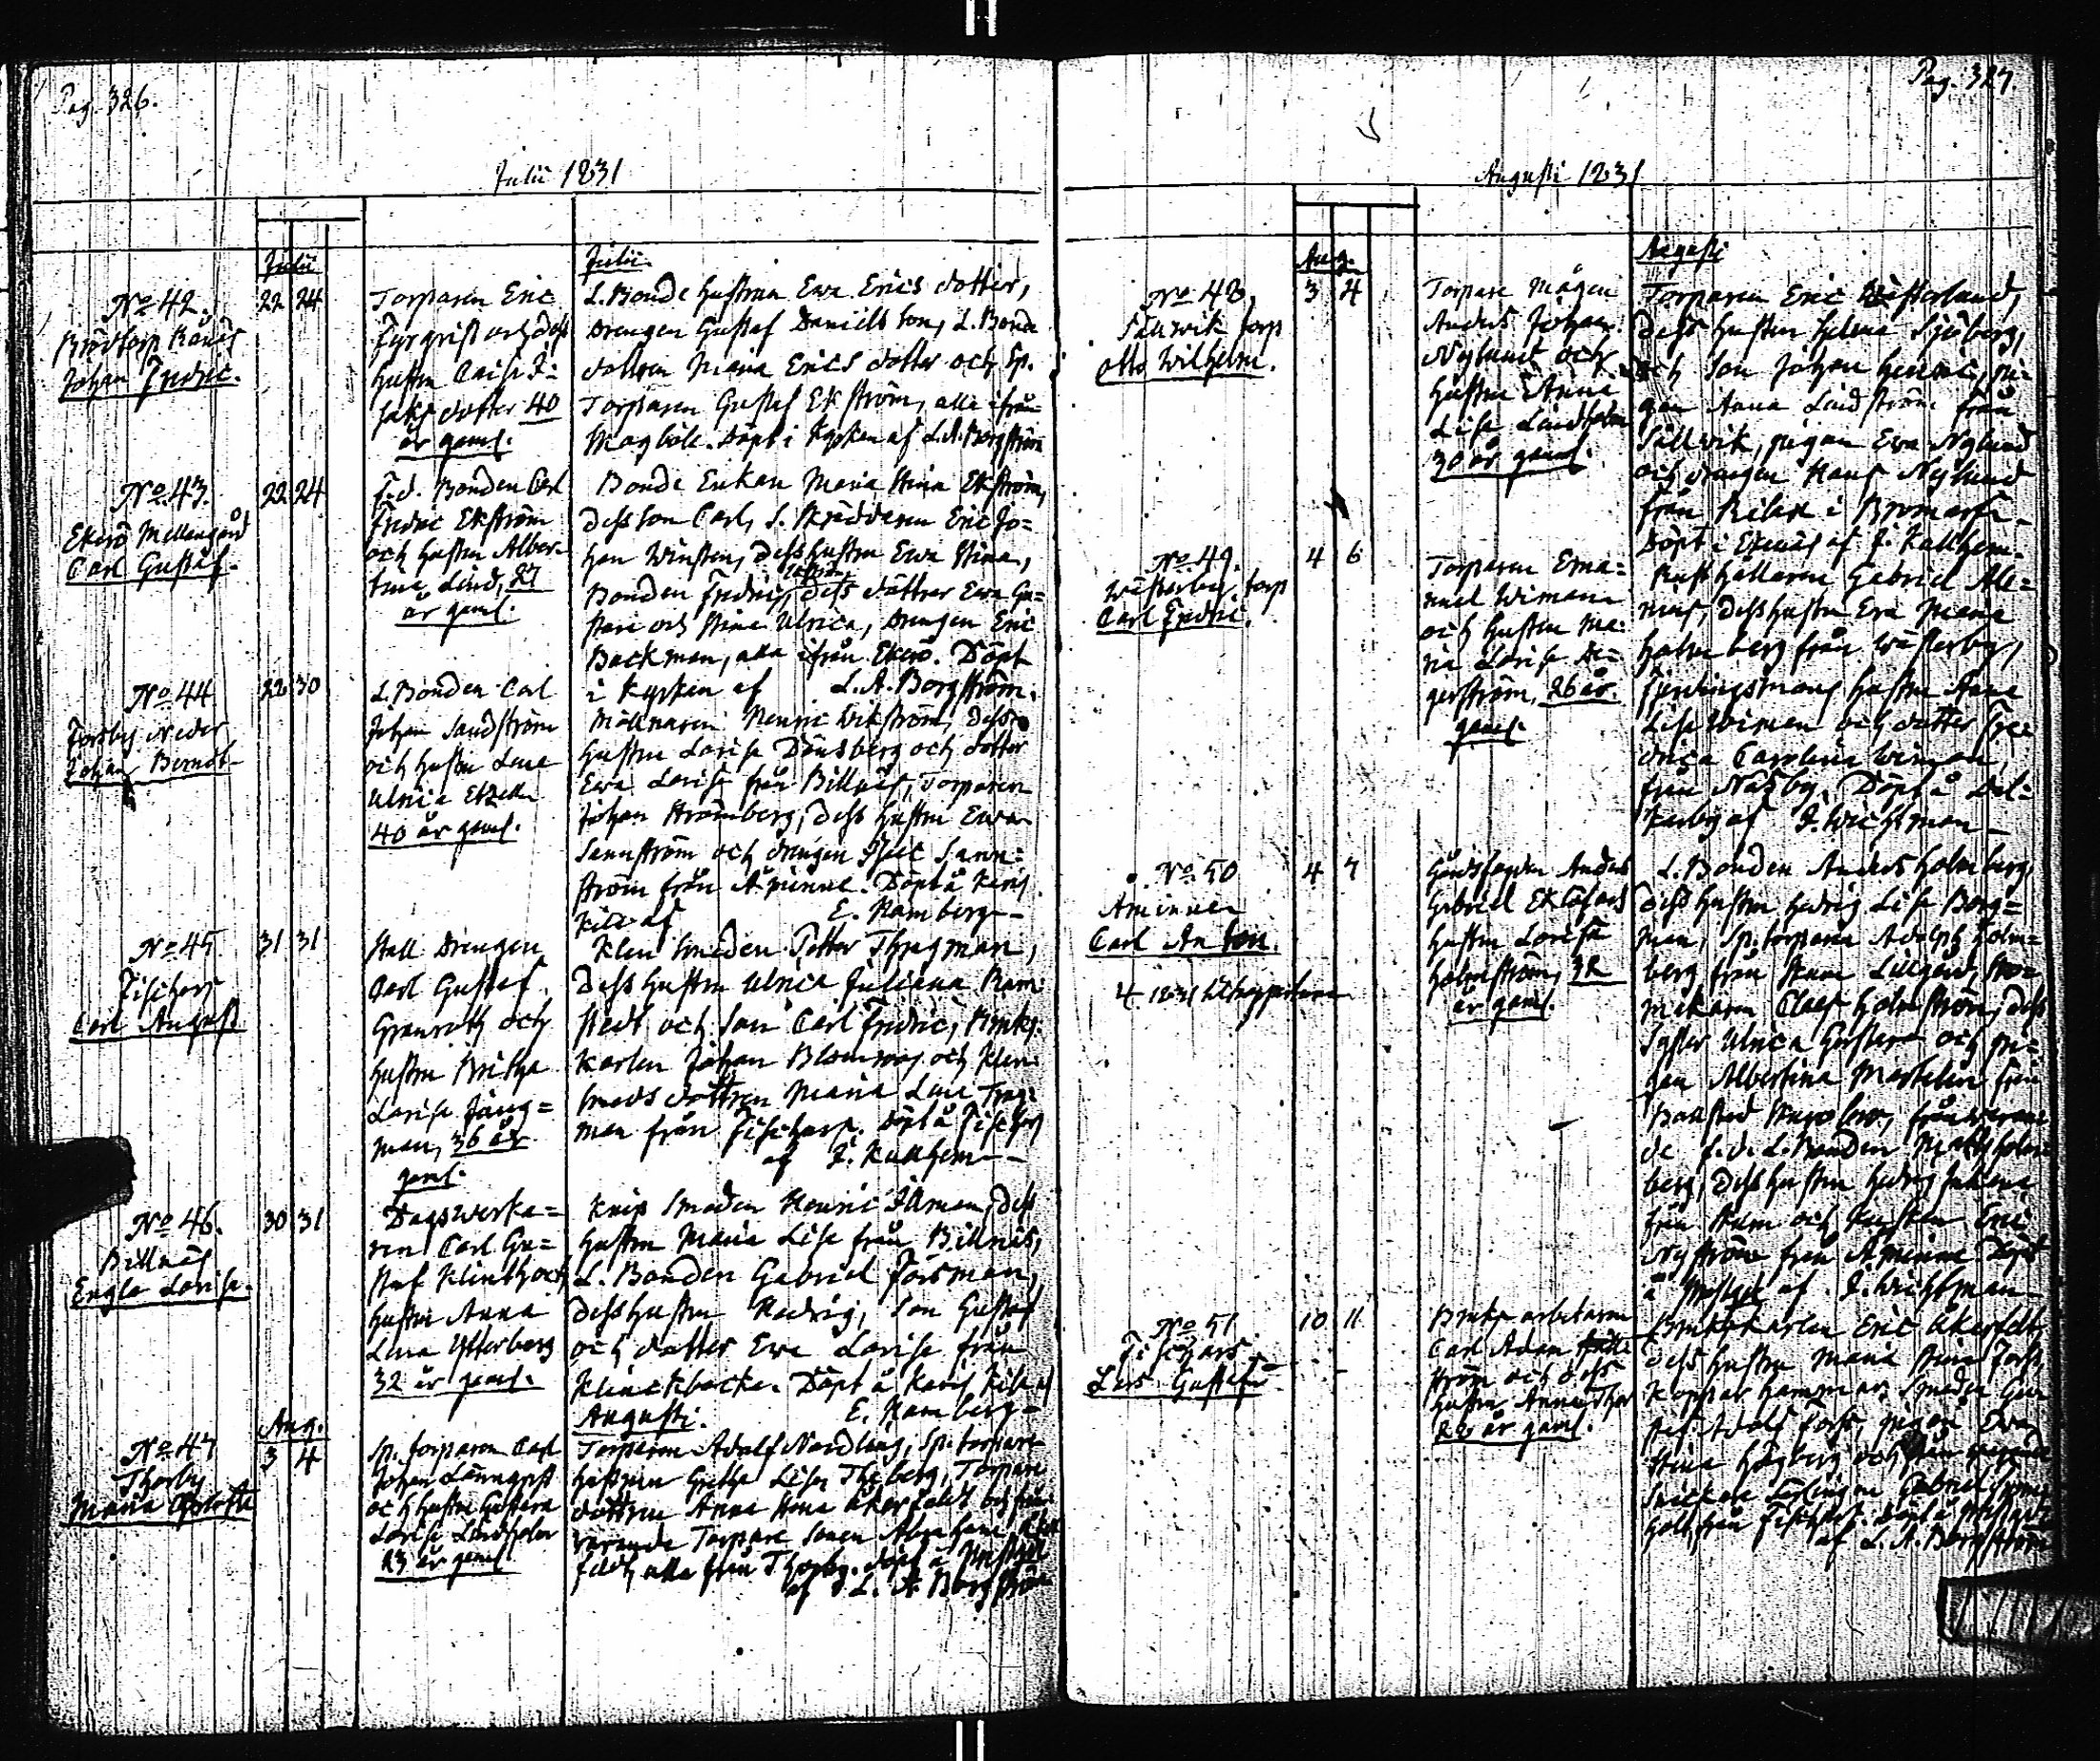 Pag. 326.
Julii 1831
Julii
Julii
No 42.
Johan Fredric.
22 24
Torparen Eric
Fyrqvist och dess
hustru Caisa I-
saks dotter 40
år gaml.
L. Bonde hustrun Ewa Erics dotter,
Drengen Gustaf Daniels son, L. Bonde
dottren Maria Erics dotter och Sp.
Torparen Gustaf Ekström, alla ifrån
Magböle. Döpt i Kyrkan af L. A. Borgström
No 43.
Ekerö Mellangård
Carl Gustaf.
22 24
F.d. Bonden Carl
Fredric Ekström
och hustru Alber-
tina Lind, 27
år gaml.
Bonde Enkan Maria Stina Ekström,
dess son Carl, S. Skräddaren Eric Jo-
han Winsten, dess hustru Ewa Stina,
Bonden Fredric, dess döttrar Ewa Gu-
stava och Stina Ulrica, Drengen Eric
Backman, alla ifrån Ekerö. Döpt
i Kyrkan af L. A. Borgström.
No 44
Forsby Neder
Johan Berndt
22 30
L. Bonden Carl
Johan Sandström
och hustru Lena
Ulrica
40 år gaml.
Möllnaren Henric Wikström, dess
hustru Lovisa Dönsberg och dotter
Ewa Lovisa från Billnäs, Torparen
Johan Strömberg, dess hustru Ewa
Sannström och drengen Isac Sann-
ström från Åminne. Döpt å Karis
Kila af E. Hamberg
No 45
Fiskars
Carl August
31 31
Stall Drengen
Carl Gustaf
Granroth och
hustru Britha
Lovisa Ljung-
man, 36 år
gaml.
Klen Smeden Petter Thregman,
dess hustru Ulrica Juliana Ram-
stedt och son Carl Fredric, Bruks
Karlen Johan Blomqvist och Klen-
smeds dottren Maria Lena Treg-
man från Fiskars. Döpt å Fiskars
af J. Kallhem
No 46.
Billnäs
Engla Lovisa.
30 31
Dagswerka-
ren Carl Gu-
staf Klinth och
hustru Anna
Lena Ytterberg
32 år gaml.
Knip Smeden Henric Illman, dess
hustru Maria Lisa från Billnäs,
L. Bonden Gabriel Forsman,
dess hustru Hedvig, son Gustaf
och dotter Ewa Lovisa från
Klinckbacka. Döpt å Karis Kila af
E. Hamberg
Aug.
Augusti.
No 47
Thorby
Maria Charlotta
3 4
Sp. torparen Carl
Johan Lönnqvist
och hustru Gustava
Lovisa Lindholm
23 år gaml.
Torparen Adolf Nordling, Sp. torpare
hustrun Gretha Lisa Theberg, Torpare
dottren Anna Stina Åkerfeldt och från-
varande Torpare sonen Abraham Åker
feldt, alla från Thorby. Döpt å Prostgård
af L. A. Borgström
Pag. 327.
Augusti 1831
Aug.
Augusti
No 48,
Sällwik torp
Otto Wilhelm.
3 4
Torpare mågen
Anders Johan
Nylund och
hustru Anna
Lisa Lindholm
30 år gaml.
Torparen Eric Westerlund,
dess hustru Helena Sjöberg,
och son Johan Henric, pi-
gan Anna Lindström från
Sällwik, pigan Ewa Nylund
och drengen Hans Nylund
från Rilax i Bromarf.
Döpt i Ekenäs af J. Kallhem.
No 49.
Westerby torp
Carl Fredric.
4 6
Torparen Ema-
nuel Wiman
och hustru Ma-
ria Lovisa Se-
gerström, 26 år
gaml.
Rusthållaren Gabriel Ale-
nius, dess hustru Ewa Maria
Holmberg från Westerby,
Fjerdingsmans hustru Anna
Lisa Wiman och dotter Fre-
drica Carolina Wiman
från Näsby. Döpt å Dal-
karby af J. Wichtman
No 50
Åminne
Carl Anton.
4 7
Gårdsfogden Anders
Gabriel Eklöfs
hustru Lovisa
Holmström, 32
år gaml.
L. Bonden Anders Holmberg,
dess hustru Hedvig Lisa Borg-
man, Sp. torparen Adolph Holm-
berg från Skam Lillgård, Sko-
makaren Claes Holmström, dess
syster Ulrica Gustava och pi-
gan Albertina Martelin från
frånwaran-
de f.d. L. Bonden Matts Holm-
berg, dess hustru Hedvig Juliana
från Skam och Kusken Eric
Nyström från Åminne. Döpt
å Prostgård af J. Wichtman
No 51.
Fiskars
Lars Gustaf
10 11
Bruks arbetaren
Carl Adam
ström och dess
hustru Anna
22 år gaml.
Brukskarlen Eric Åkerfeldt,
dess hustru Maria Stina Forss,
Koppar hammar smeden Gu-
staf Adolf Forss, pigan Ewa
Stina Högberg och frånvarande
Snickare Lärlingen Gabriel
från Fiskars. Döpt å Prostgård
af L. A. Borgström